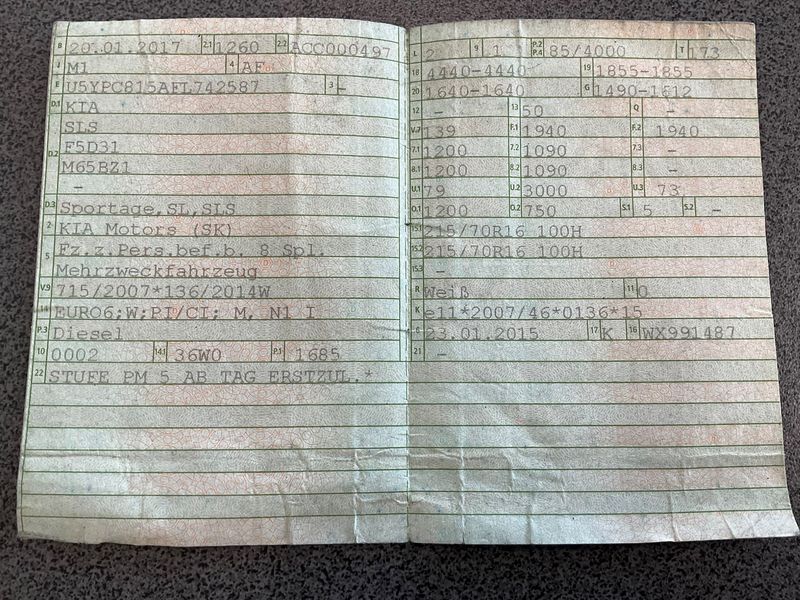 B 20.01.2017 2.1 1260 2.2 ACC000497
J M1 4 AF
E U5YPC815AFL742587 3 -
D.1 KIA
SLS
D.2 F5D31
M65BZ1
-
D.3 Sportage,SL,SLS
2 KIA Motors (SK)
5 Fz.z.Pers.bef.b. 8 Spl.
Mehrzweckfahrzeug
V.9 715/2007*136/2014W
14 EURO6;W;PI/CI; M, N1 I
P.3 Diesel
10 0002 14.1 36W0 P.1 1685
22 STUFE PM 5 AB TAG ERSTZUL.*
L 2 9 1 P.2 P.4 85/4000 T 173
18 4440-4440 19 1855-1855
20 1640-1640 G 1490-1612
12 - 13 50 Q -
V.7 139 F.1 1940 F.2 1940
7.1 1200 7.2 1090 7.3 -
8.1 1200 8.2 1090 8.3 -
U.1 79 U.2 3000 U.3 73
O.1 1200 O.2 750 S.1 5 S.2 -
15.1 215/70R16 100H
15.2 215/70R16 100H
15.3 -
R Weiß 11 0
K e11*2007/46*0136*15
6 23.01.2015 17 K 16 WX991487
21 -